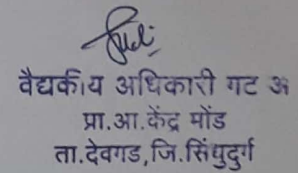 वैद्यकीय अधिकारी गट अ
प्रा.आ.केंद्र मोंड
ता.देवगड,जि.सिंधुदुर्ग